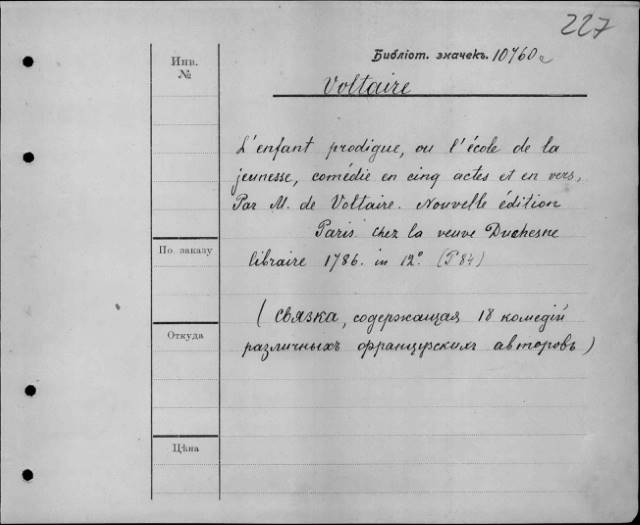 227
Инв. №
Библіот. значекъ. 10760a
Voltaire
L'enfant prodigue, ou l'école de la
jeunesse, comédie en cinq actes et en vers,
Par M. de Voltaire. Nouvelle édition
Paris chez la veuve Duchesne
libraire 1786. in 12° (P 84)
(связка, содержащая 18 комедій
различныхъ французскихъ авторовъ)
По заказу
Откуда
Цѣна